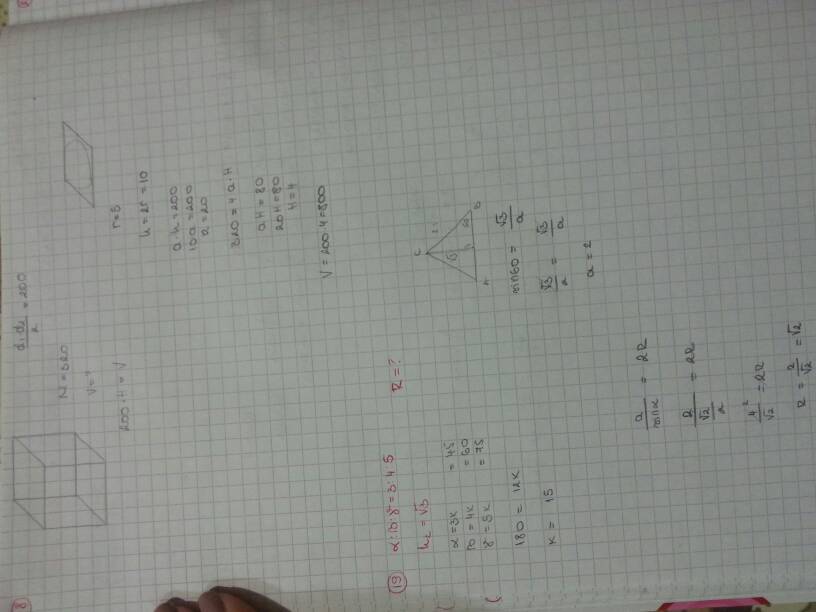 8
d₁·d₂/2 = 200
M = 320
V = ?
200·H = V
r=5
h = 2r = 10
a·h = 200
10a = 200
a = 20
320 = 4a·H
aH = 80
20H = 80
H = 4
V = 200·4 = 800
19 α:β:γ = 3:4:5 R = ?
h_c = √3
α = 3k = 45
β = 4k = 60
γ = 5k = 75
180 = 12k
k = 15
C
√3
60
A
B
sin60 = √3/a
√3/2 = √3/a
a = 2
a/sinα = 2R
2/(√2/2) = 2R
4/√2 = 2R
R = 2/√2 = √2